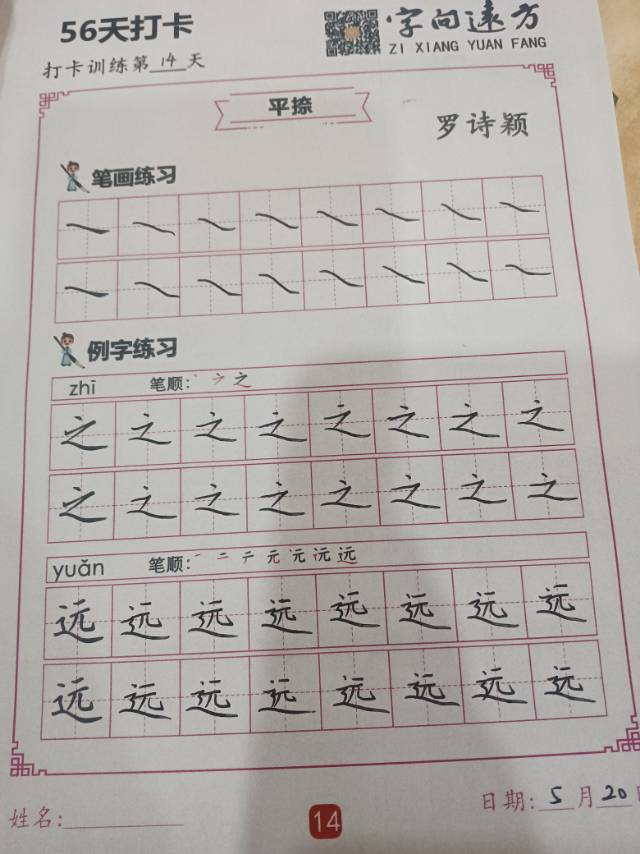 56天打卡
字向远方
ZI XIANG YUAN FANG
打卡训练第14天
平捺
罗诗颖
笔画练习
例字练习
zhī 笔顺:丶 ㇇ 之
之 之 之 之 之 之 之 之
之 之 之 之 之 之 之 之
yuǎn 笔顺:一 二 テ 元 远
远 远 远 远 远 远 远 远
远 远 远 远 远 远 远 远
姓名:
14
日期: 5 月 20